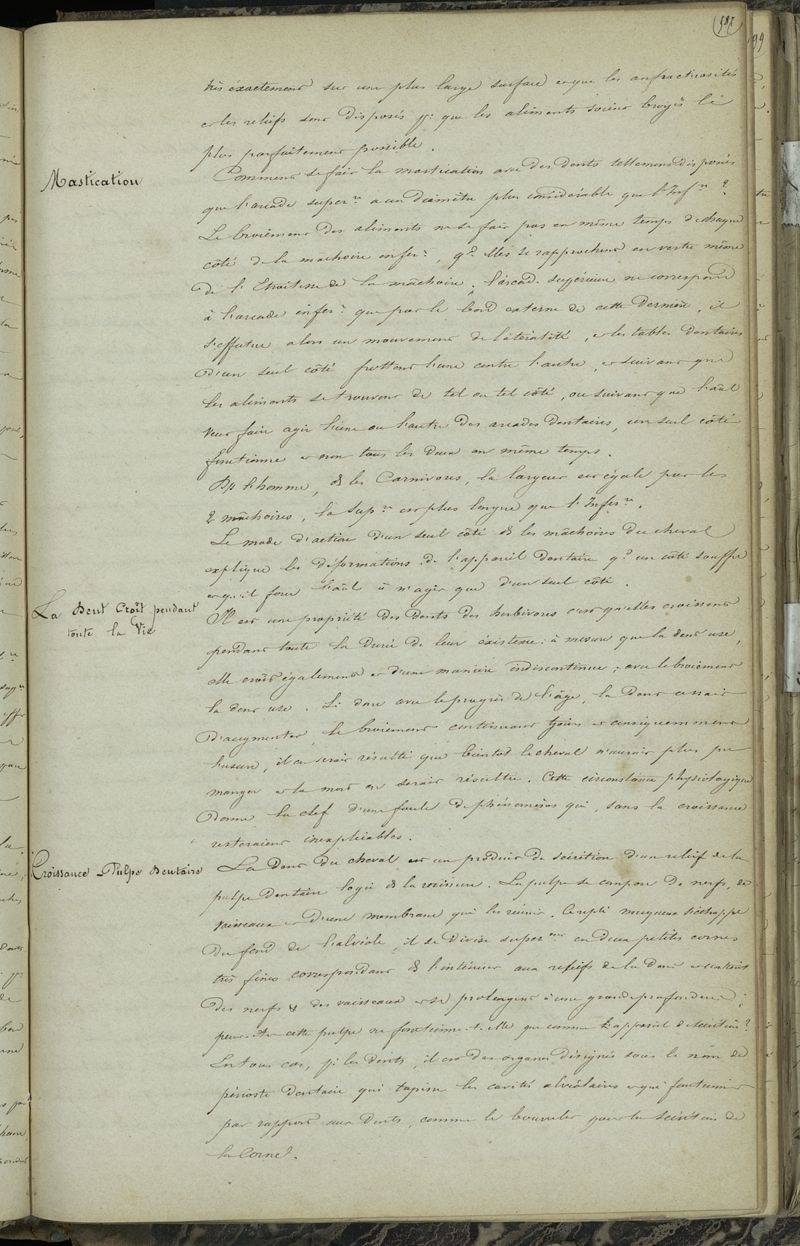 très exactement sur une plus large surface et que les anfractuosités
et les reliefs sont disposés pr que les aliments soient broyés le
plus parfaitement possible.
Mastication
Comment se fait la mastication avec des dents tellement disposées
que l'arcade superre a un diamètre plus considérable que l'infre ?
Le broiement des aliments ne se fait pas en même temps de chaque
côté de la machoire infere, qd elles se rapprochent en vertu même
de l'étroitesse de la mâchoire, l'arcade supérieure ne correspond
à l'arcade infere que par le bord externe de cette dernière, il
s'effectue alors un mouvement de latéralité, et les tables dentaires
d'un seul côté frottent l'une contre l'autre, et suivant que
les aliments se trouvent de tel ou tel côté, ou suivant que l'aâl
veut faire agir l'une ou l'autre des arcades dentaires, un seul côté
fonctionne et non tous les deux en même temps.
l'homme, ds les Carnivores, la largeur est égale pour les
2 mâchoires, la supre est plus longue que l'Infere.
Le mode d'action d'un seul côté ds les mâchoires du cheval
explique les déformations de l'appareil dentaire qd un côté souffre
et qu'il force l'aâl à n'agir que d'un seul côté.
La Dent Croît pendant
toute la Vie
Il est une propriété des dents des herbivores c'est qu'elles croissent
pendant toute la durée de leur existence : à mesure que la dent use,
elle croît également et d'une manière indiscontinue ; avec le broiement
la dent use. Si donc avec le progrès de l'âge, la Dent cessait
d'augmenter, le broiement continuant tjours et conséquemment
l'usure, il en serait résulté que bientôt le cheval n'aurait plus pu
manger et la mort en serait résultée. Cette circonstance physiologique
donne la clef d'une foule de phénomènes qui, sans la croissance
resteraient inexpliables.
Croissance Pulpe Dentaire
La Dent du cheval est un produit de sécrétion d'un relief de la
pulpe dentaire logée ds la racine. La pulpe se compose de nerfs, de
vaisseaux et d'une membrane qui les réunit. Ce repli muqueux s'échappe
du fond de l'alvéole, il se divise en deux petites cornes
très fines correspondant ds l'intérieur aux reliefs de la dent
des nerfs & des vaisseaux et se prolongent à une grande profondeur ;
peut-être cette pulpe ne fonctionne-t-elle que comme l'appareil de sécrétion ?
En tous cas, pr les dents, il est des organes désignés sous le nom de
périoste dentaire qui tapisse les cavités alvéolaires et qui fonctionne
par rapport aux Dents, comme le bourrelet pour la sécrétion de
la Corne.